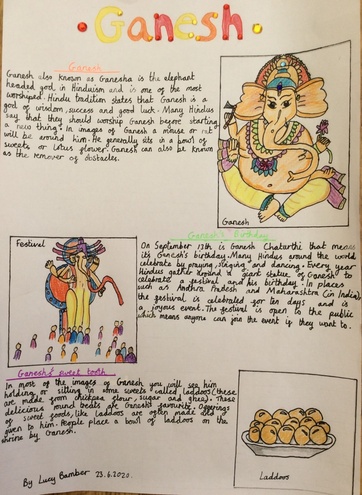 Ganesh
Ganesh
Ganesh also known as Ganesha is the elephant
headed god in Hinduism and is one of the most
worshiped. Hindu tradition states that Ganesh is a
god of wisdom, success and good luck. Many Hindus
say that they should worship Ganesh before starting
a new thing. In images of Ganesh a mouse or rat
will be around him. He generally sits in a bowl of
sweets or lotus flower. Ganesh can also be known
as the remover of obstacles.
Ganesh
Ganesh's Birthday
On September 17th is Ganesh Chatarthi that means
its Ganesh's birthday. Many Hindus around the world
celebrate by praying, singing and dancing. Every year
Hindus gather around a giant statue of Ganesh to
celebrate a festival and his birthday. In places
such as Andhra Pradesh and Maharashtra (in India)
the festival is celebrated for ten days and is
a joyous event. The festival is open to the public
which means anyone can join the event if they want to.
Festival
Ganesh's sweet tooth
In most of the images of Ganesh you will see him
holding or sitting in some sweets called laddoos (these
are made from chickpea flour, sugar and ghee). These
delicious round treats are Ganesh's favourite. Offerings
of sweet foods, like laddoos are often made and
given to him. People place a bowl of laddoos on the
shrine by Ganesh.
Laddoos
By Lucy Bamber 23.6.2020.